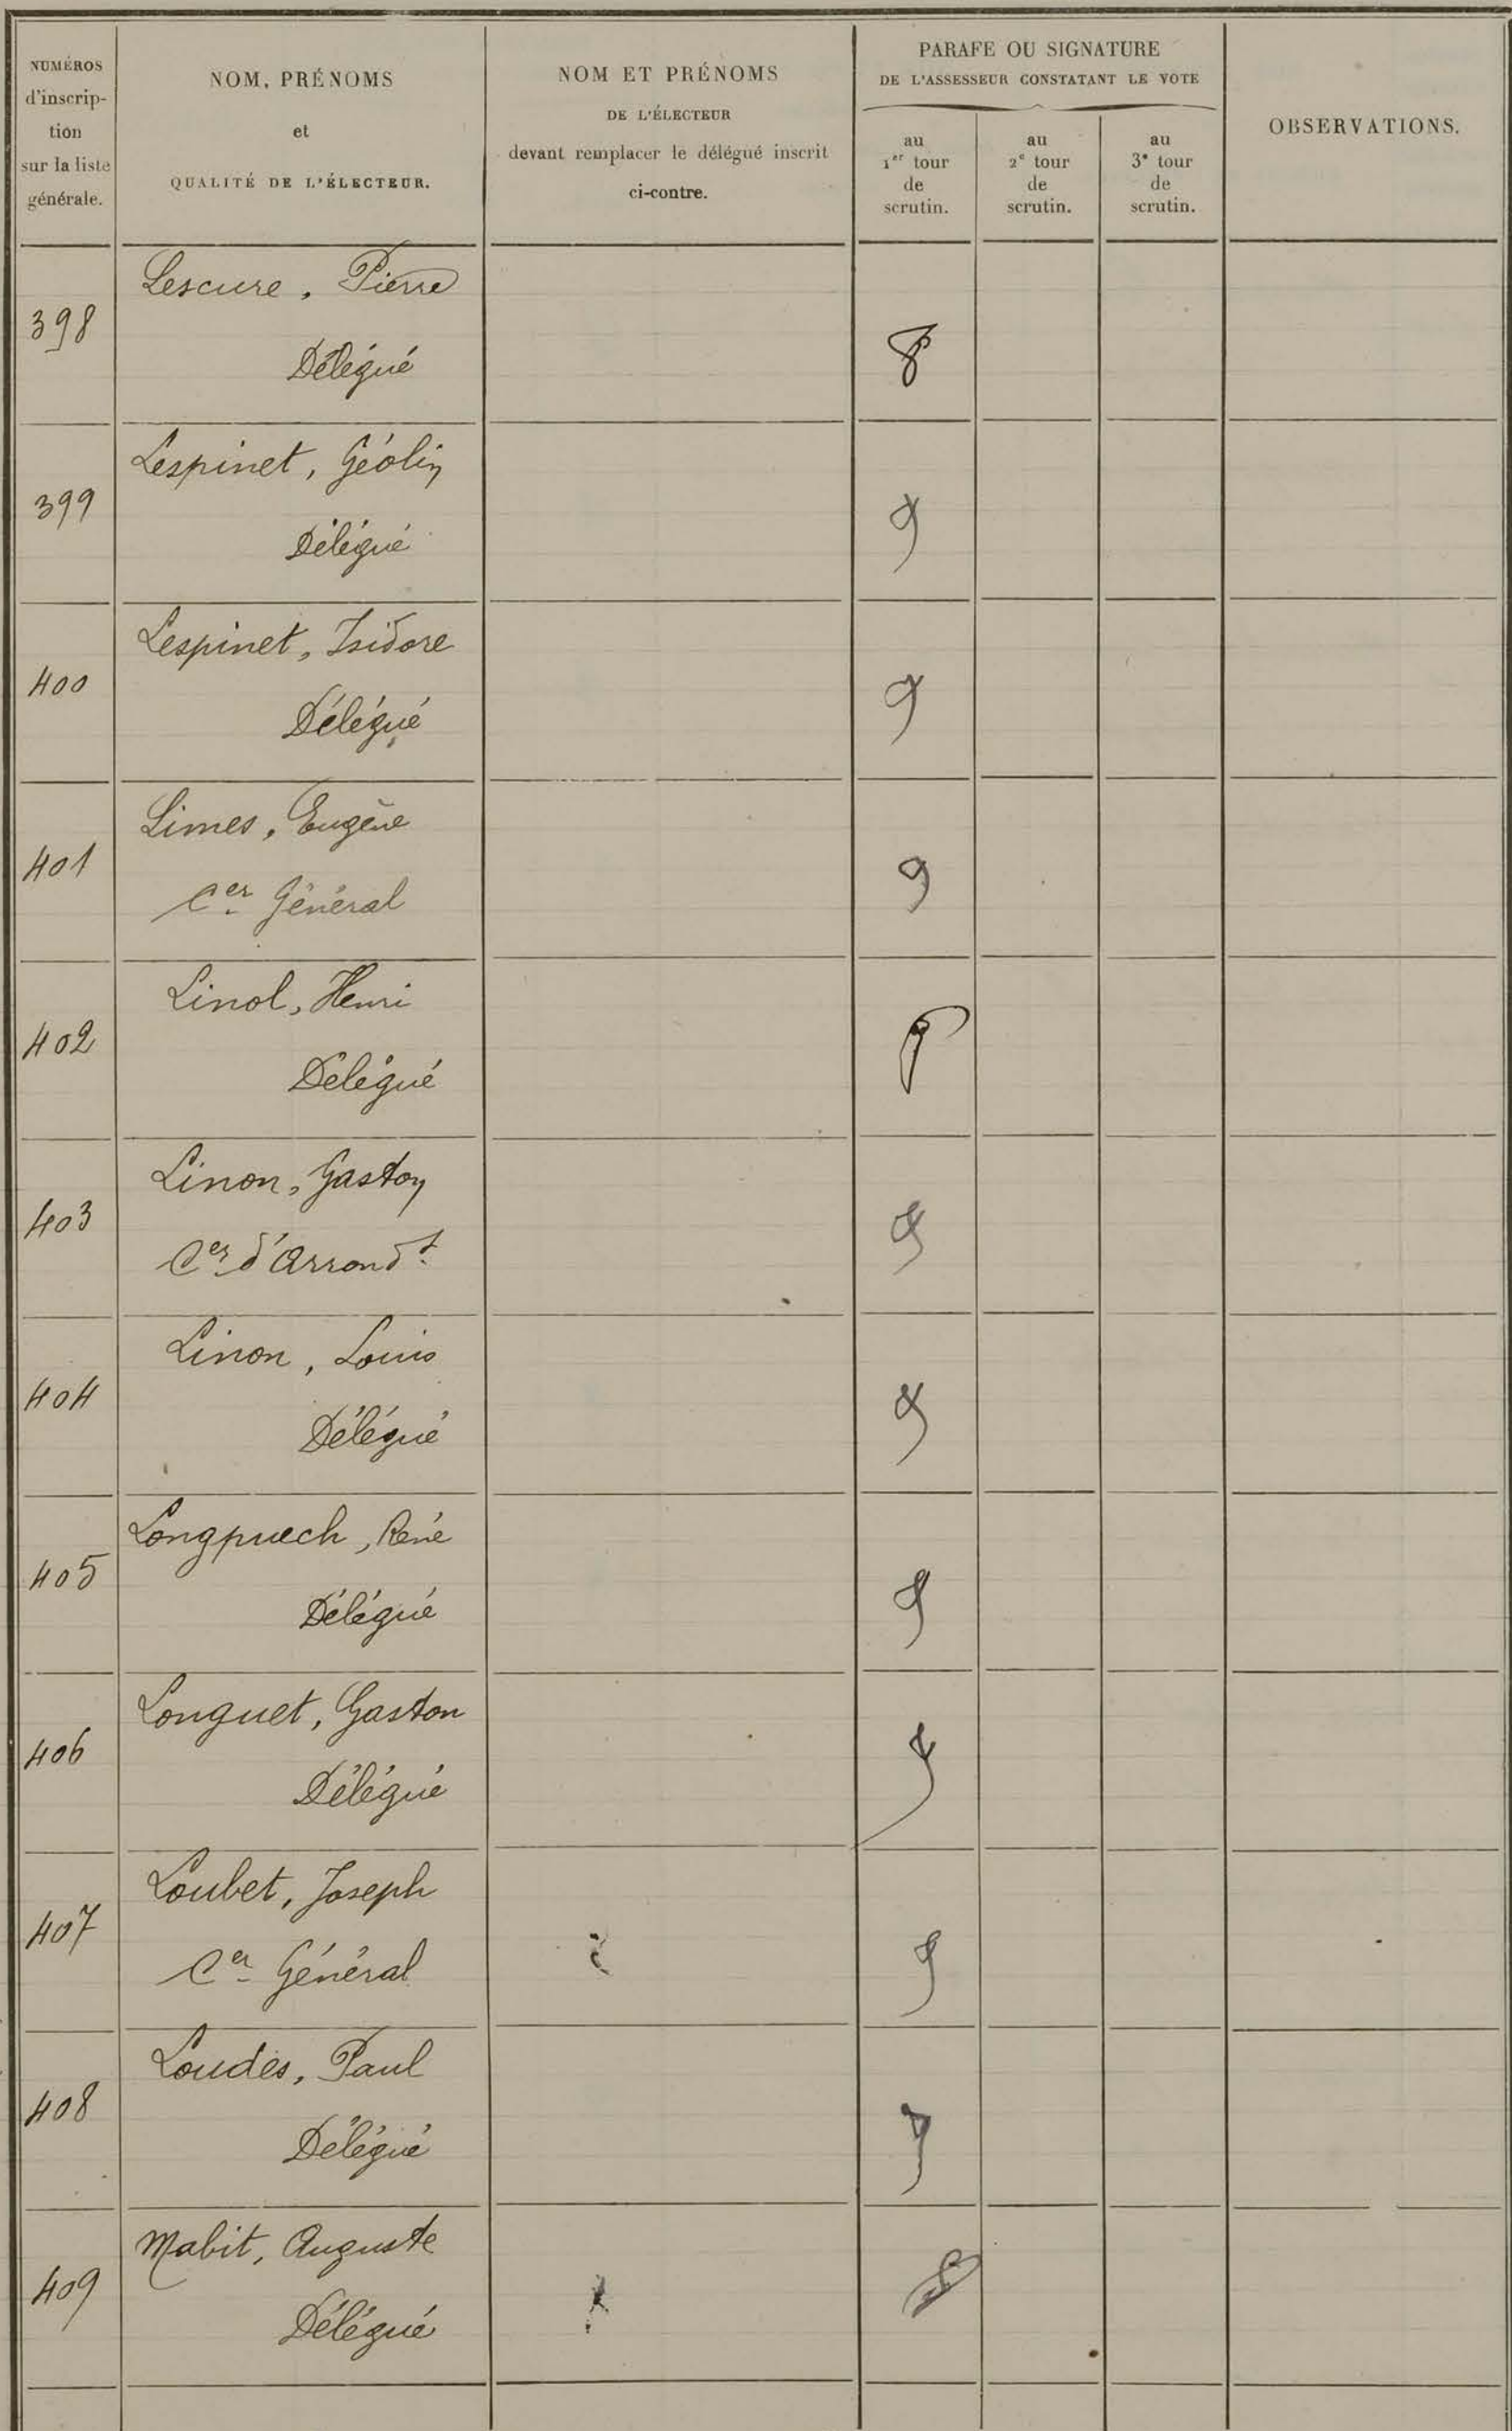 NUMÉROS
d'inscrip-
tion
sur la liste
générale.
NOM, PRÉNOMS
et
QUALITÉ DE L'ÉLECTEUR.
NOM ET PRÉNOMS
DE L'ÉLECTEUR
devant remplacer le délégué inscrit
ci-contre.
PARAFE OU SIGNATURE
DE L'ASSESSEUR CONSTATANT LE VOTE
au
1er tour
de
scrutin.
au
2e tour
de
scrutin.
au
3e tour
de
scrutin.
OBSERVATIONS.
398
Lescure, Pierre
Délégué
399
Lespinet, Géolin
Délégué
400
Lespinet, Isidore
Délégué
401
Limes, Eugène
Cer Général
402
Linol, Henri
Délégué
403
Linon, Gaston
Cer d'Arrondt.
404
Linon, Louis
Délégué
405
Longpuech, René
Délégué
406
Longuet, Gaston
Délégué
407
Loubet, Joseph
Cer Général
408
Loudes, Paul
Délégué
409
Mabit, Auguste
Délégué